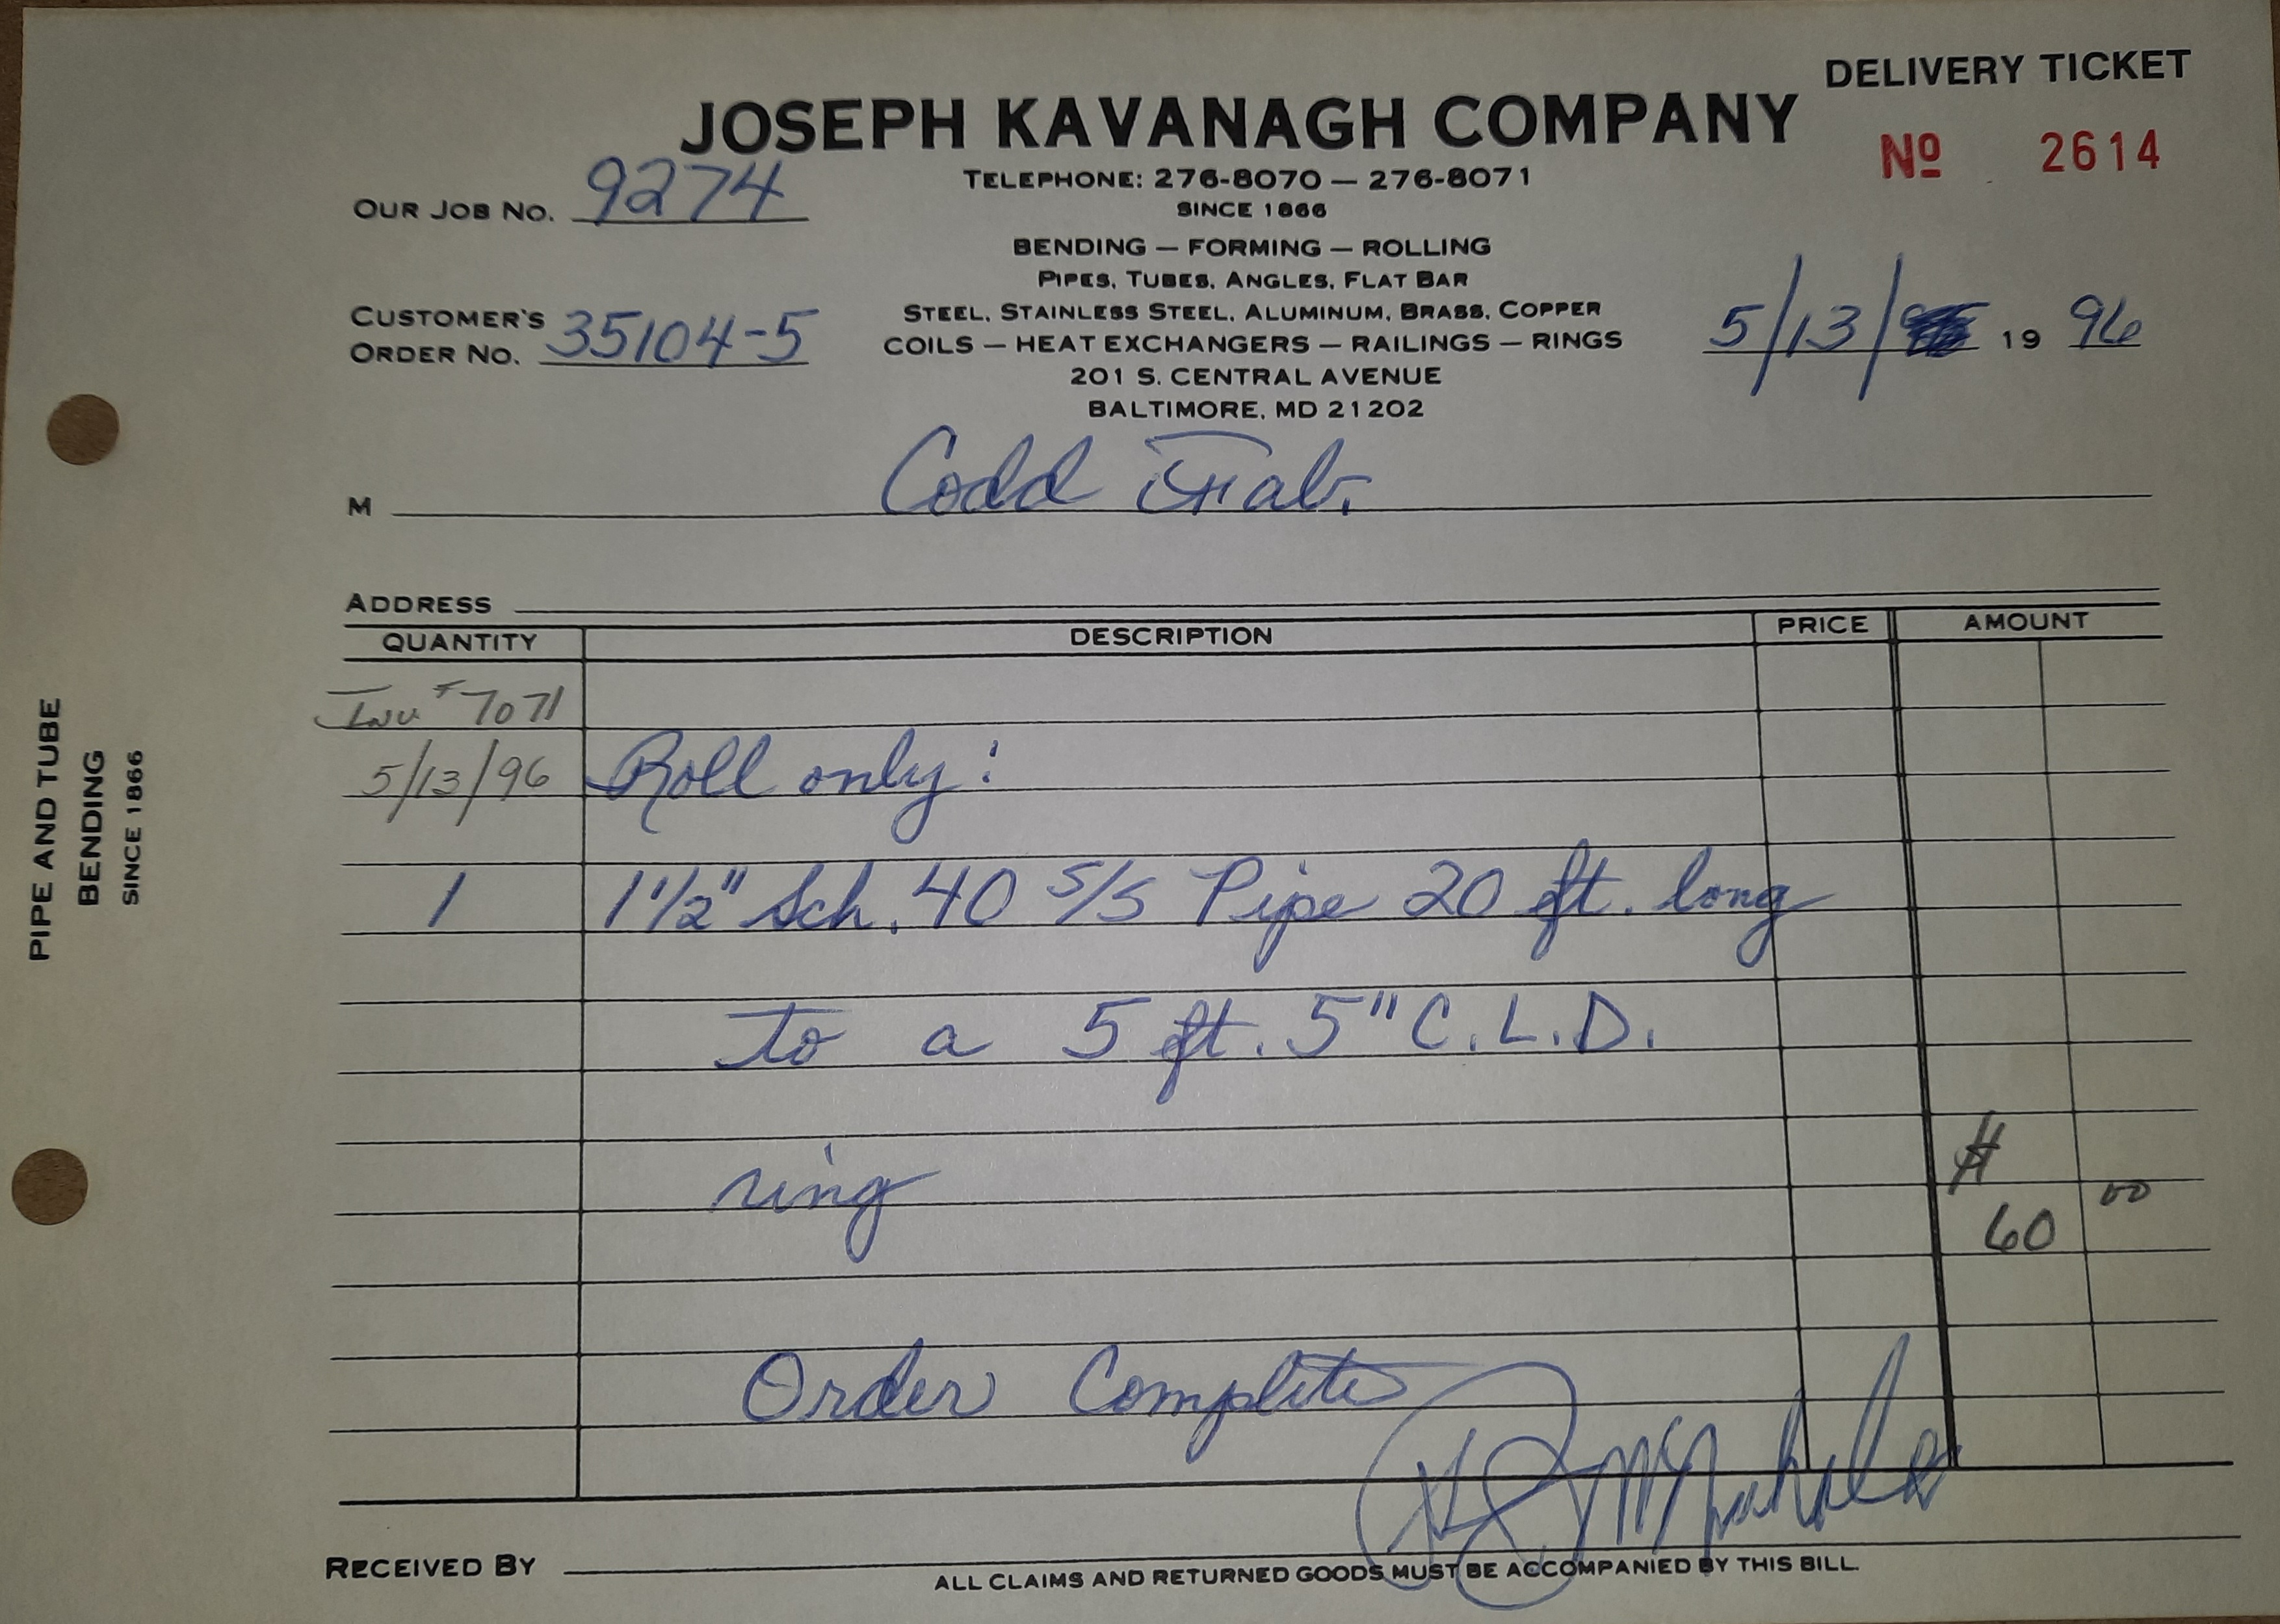 DELIVERY TICKET
JOSEPH KAVANAGH COMPANY
Nº 2614
TELEPHONE: 276-8070 — 276-8071
SINCE 1866
OUR JOB NO. 9274
BENDING — FORMING — ROLLING
PIPES, TUBES, ANGLES, FLAT BAR
STEEL, STAINLESS STEEL, ALUMINUM, BRASS, COPPER
CUSTOMER'S
ORDER NO. 35104-5
COILS — HEAT EXCHANGERS — RAILINGS — RINGS
5/13/ 19 96
201 S. CENTRAL AVENUE
BALTIMORE, MD 21202
M Codd Fab.
ADDRESS
QUANTITY DESCRIPTION PRICE AMOUNT
Inv. # 7071
5/13/96 Roll only:
1 1 1/2" Sch. 40 S/S Pipe 20 ft. long
to a 5 ft. 5" C.L.D.
ring
$ 60 00
Order Complete
RECEIVED BY
ALL CLAIMS AND RETURNED GOODS MUST BE ACCOMPANIED BY THIS BILL.
PIPE AND TUBE
BENDING
SINCE 1866